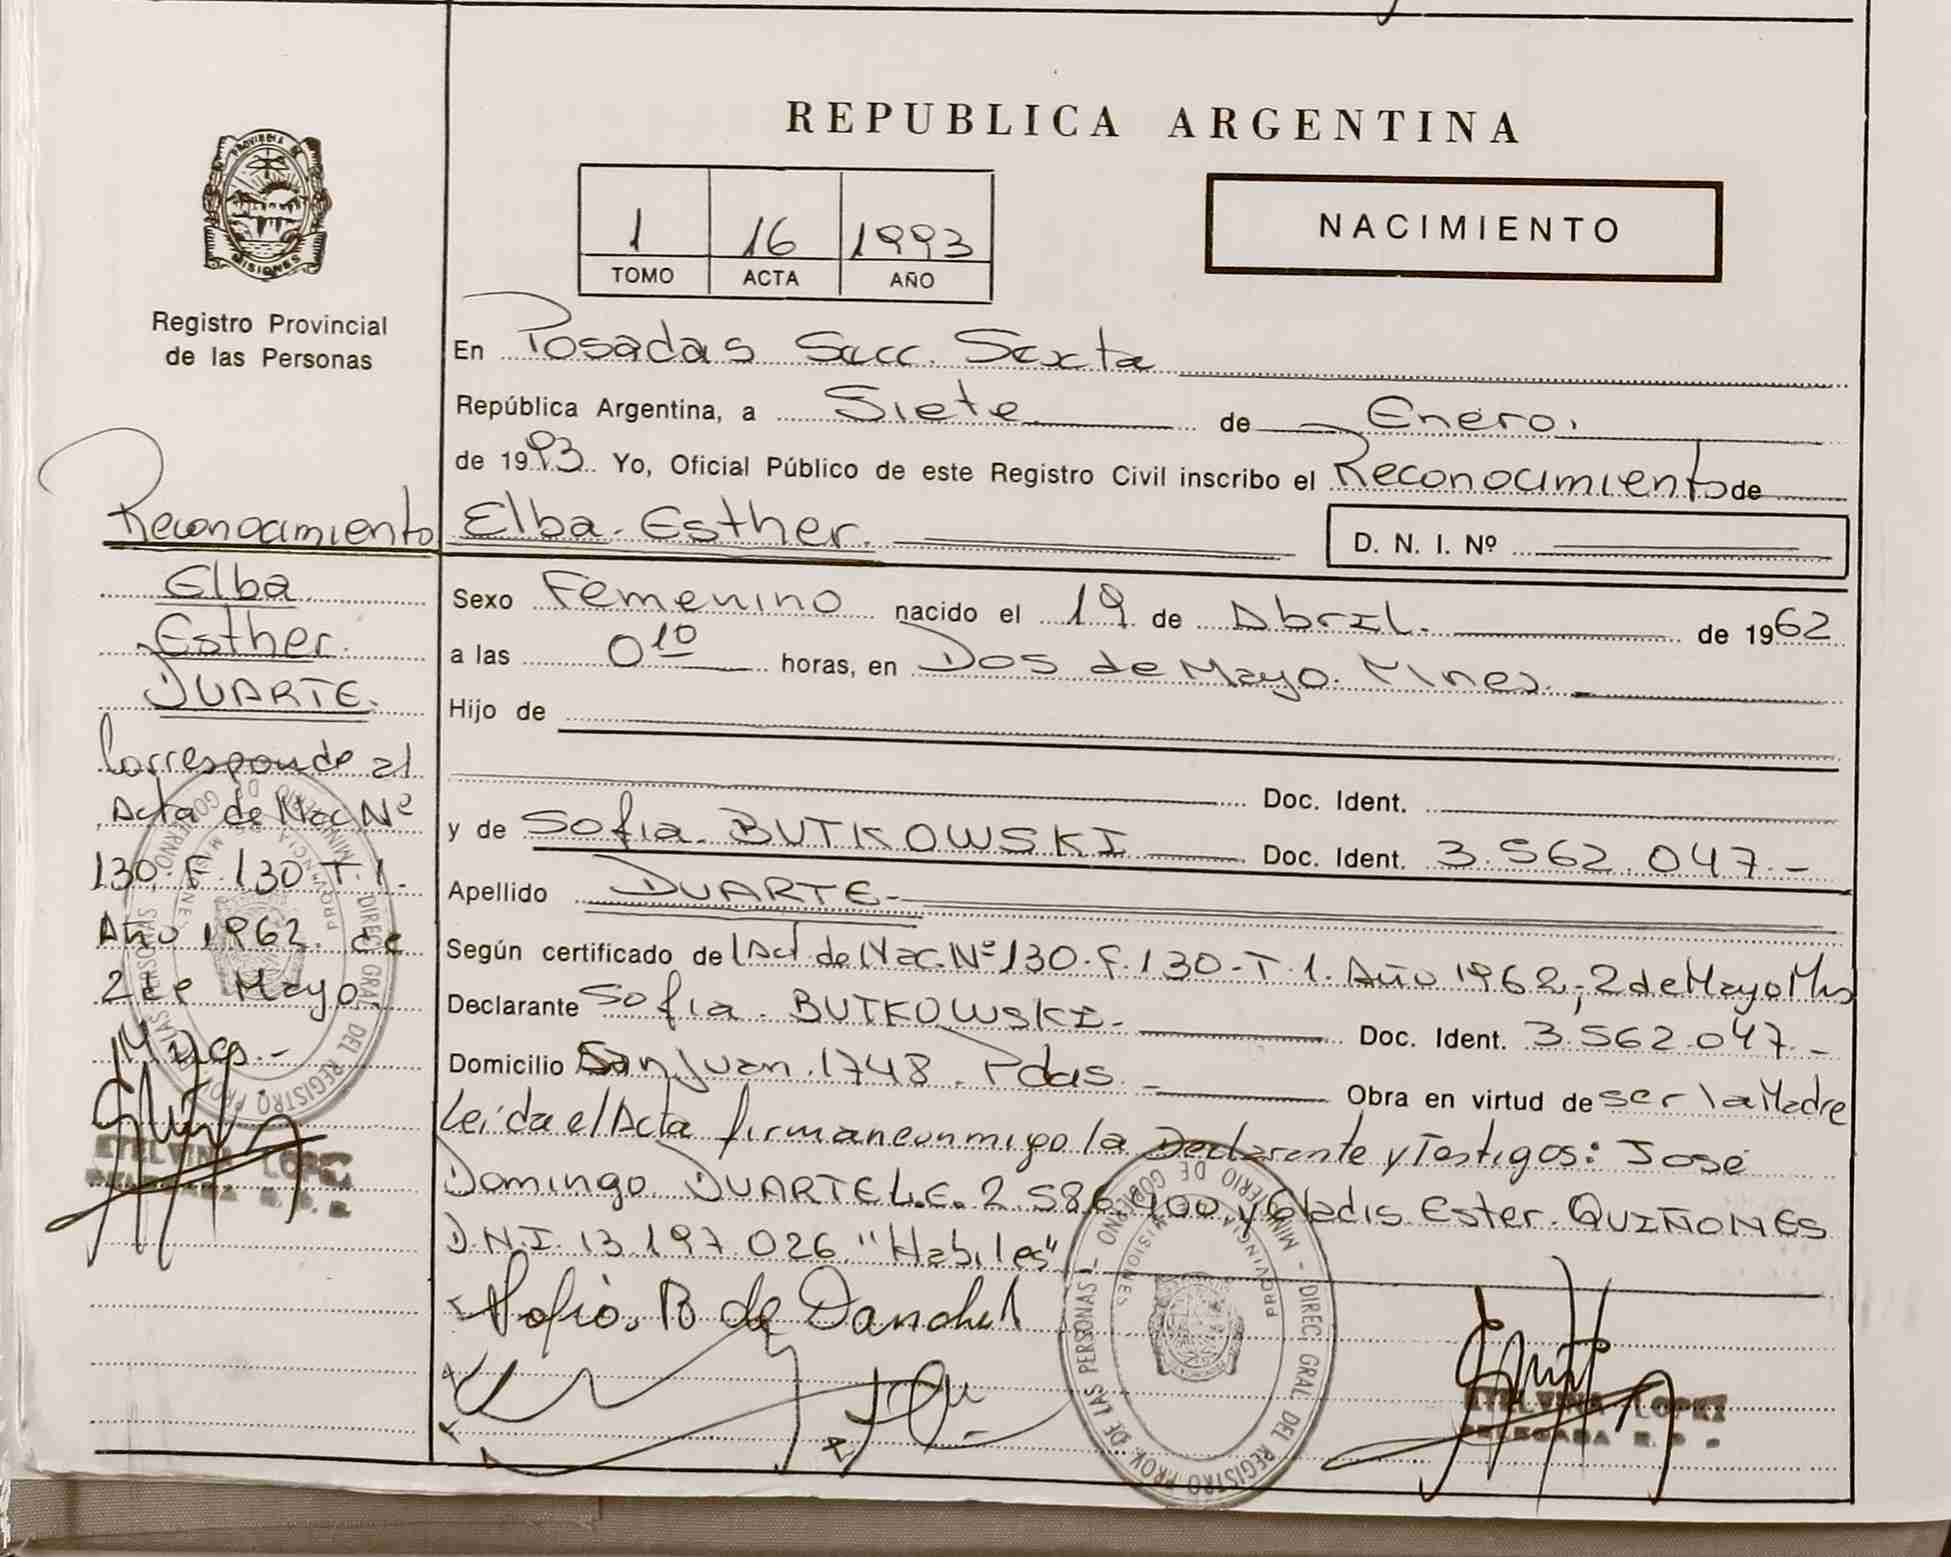 REPUBLICA ARGENTINA
PROVINCIA DE
MISIONES
Registro Provincial
de las Personas
1 16 1993
TOMO ACTA AÑO
NACIMIENTO
En Posadas Secc. Sexta
República Argentina, a Siete de Enero.
de 1993 Yo, Oficial Público de este Registro Civil inscribo el Reconocimiento de
Elba Esther.
D. N. I. Nº
Sexo Femenino nacido el 19 de Abril. de 1962
a las 0 10 horas, en Dos de Mayo. Mnes.
Hijo de
Doc. Ident.
y de Sofia. BUTKOWSKI Doc. Ident. 3.562.047.-
Apellido DUARTE-
Según certificado de Act. de Nac. Nº 130. F. 130-T. 1. Año 1962, 2 de Mayo Mns
Declarante Sofia. BUTKOWSKI- Doc. Ident. 3.562.047.-
Domicilio San Juan. 1748. Pdas. Obra en virtud de ser la Madre
Leida el Acta firman conmigo la Declarante y Testigos: José
Domingo DUARTE L.E. 2.586.400 y Gladis Ester. QUIÑONES
D.N.I. 13.197.026 "Habiles"
Sofia. B de
ETELVINA LOPEZ
DELEGADA R. P.
MINISTERIO DE GOBIERNO - DIREC. GRAL. DEL REGISTRO PROV. DE LAS PERSONAS
PROVINCIA MISIONES
Reconocimiento
Elba
Esther.
DUARTE.
Corresponde al
Acta de Nac Nº
130. F. 130 T. 1.
Año 1962. de
2 de Mayo
Mnes.-
ETELVINA LOPEZ
DELEGADA R. P.
MINISTERIO DE GOBIERNO DIREC. GRAL. DEL REGISTRO PROV. DE LAS PERSONAS
PROVINCIA MISIONES